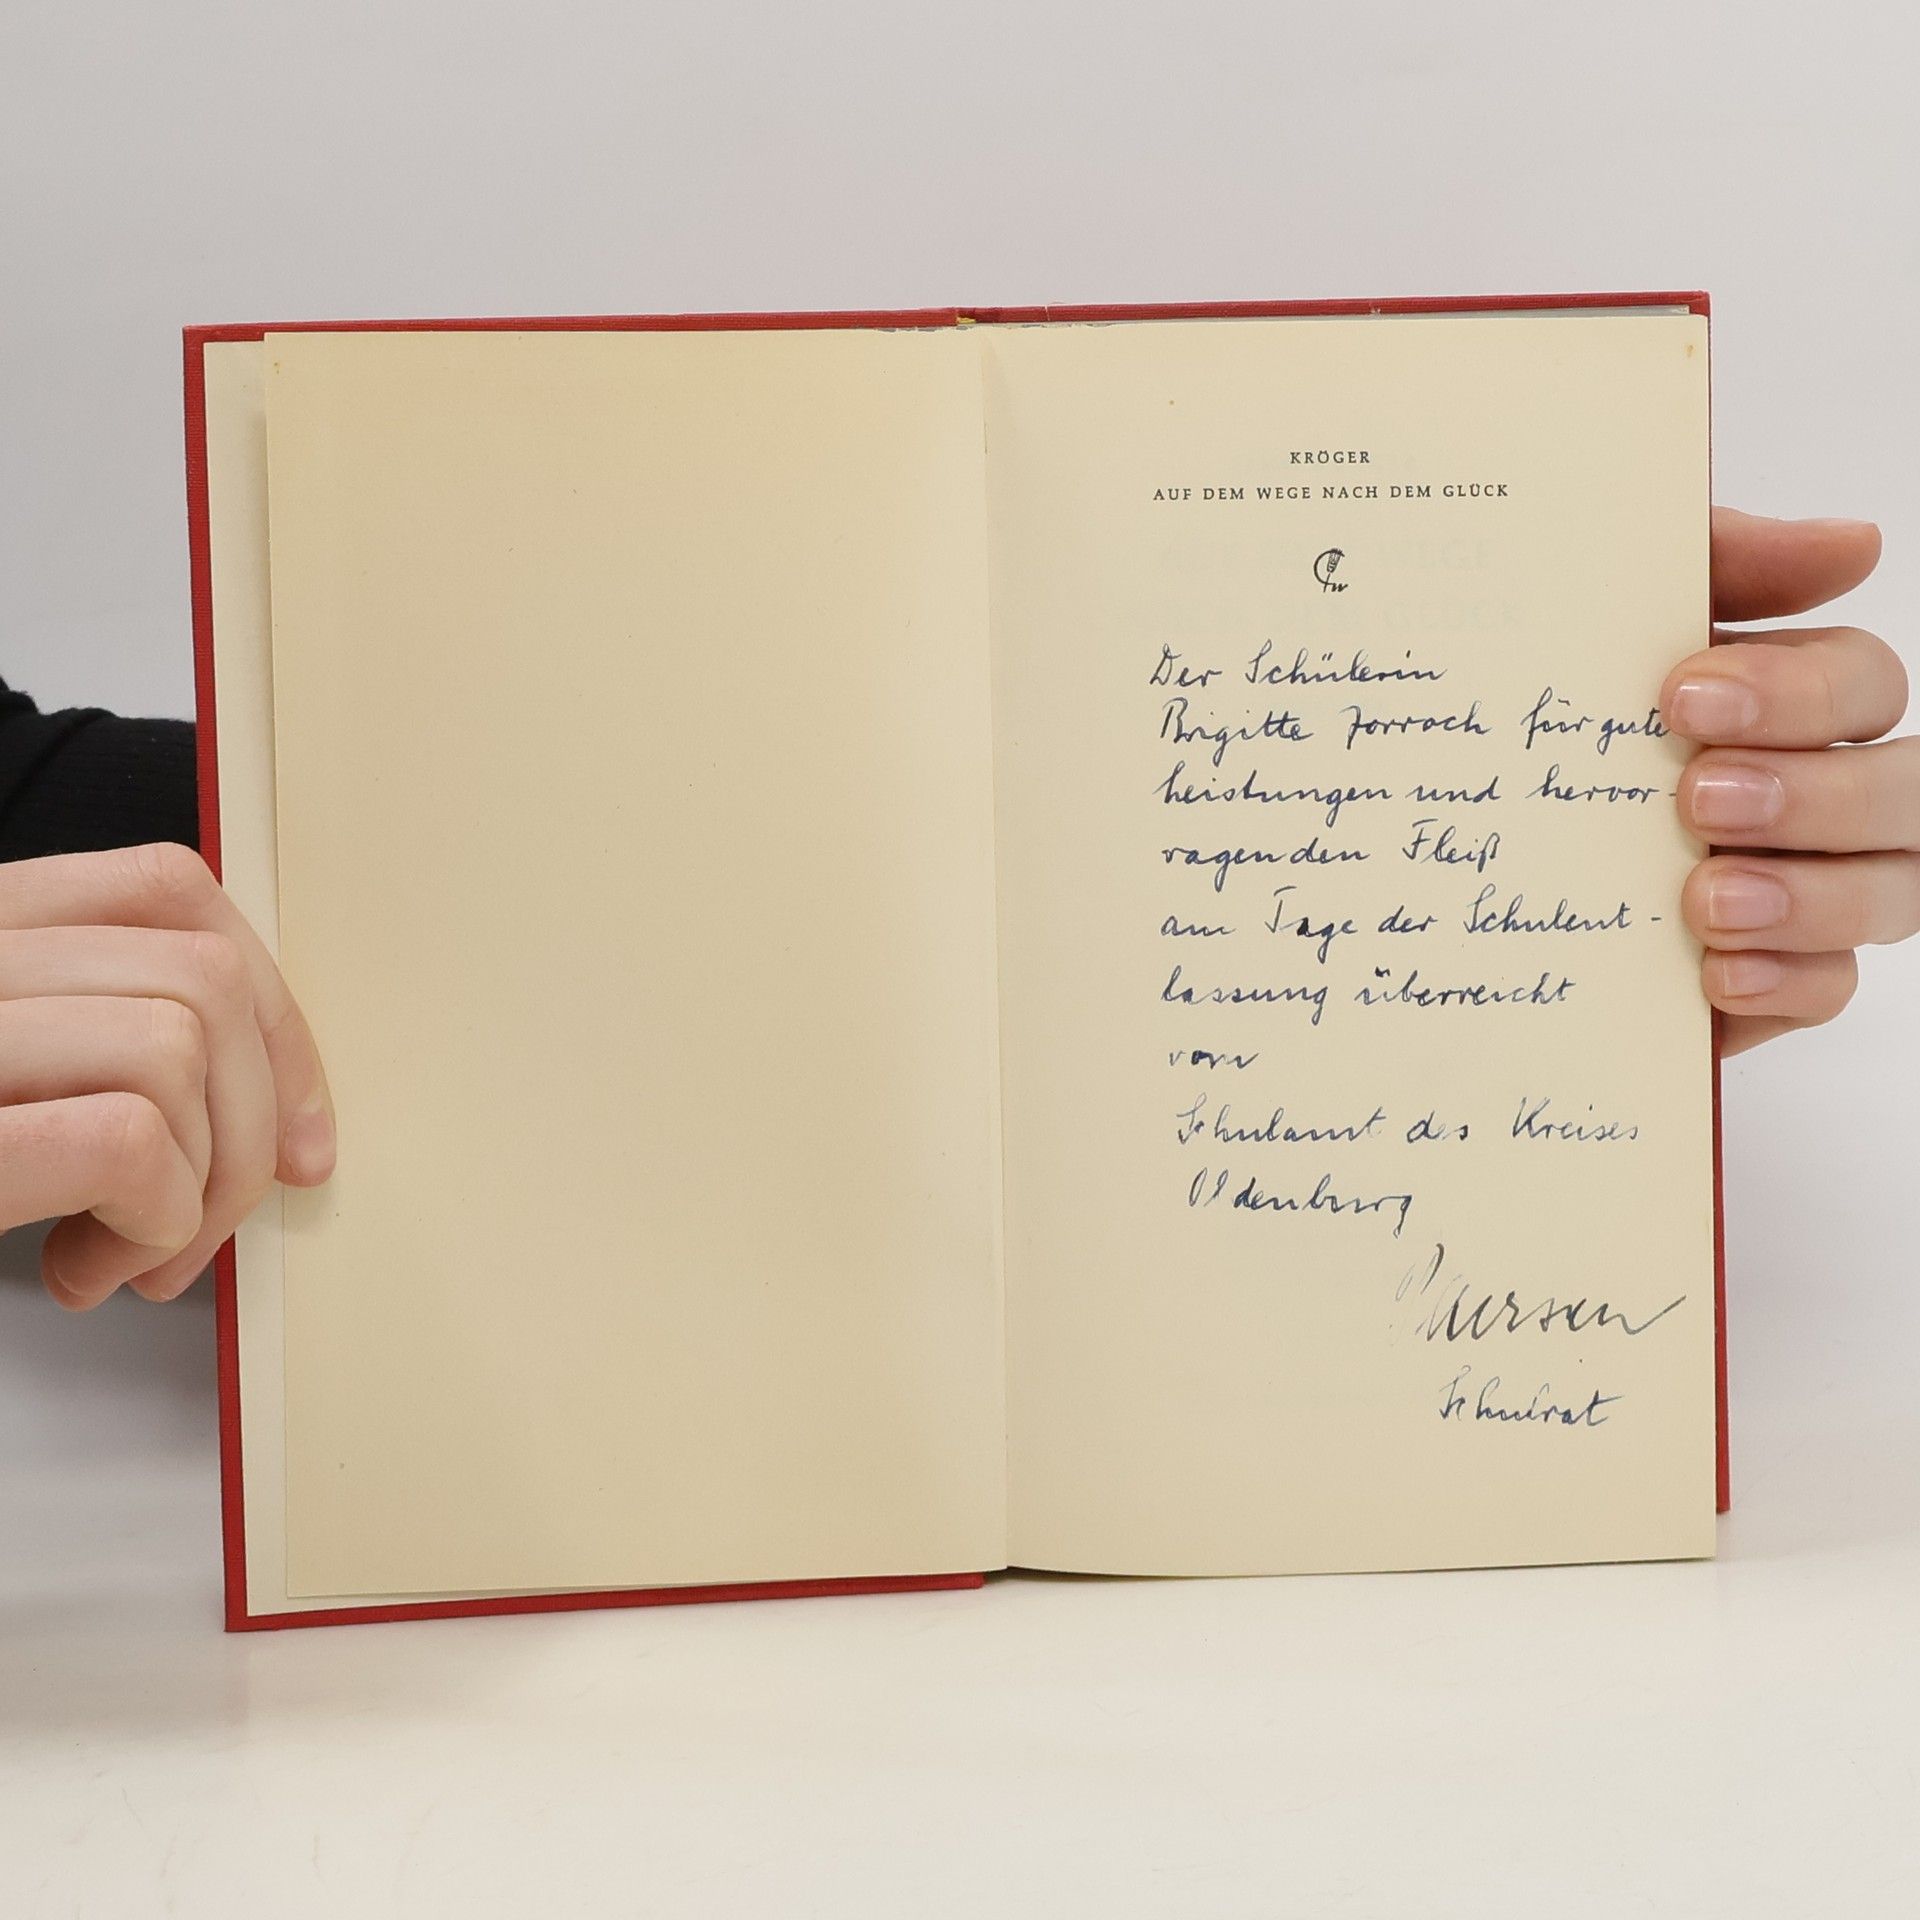 KRÖGER
AUF DEM WEGE NACH DEM GLÜCK
Der Schülerin
Brigitte für gute
Leistungen und hervor-
ragenden Fleiß
am Tage der Schulent-
lassung überreicht
vom
Schulamt des Kreises
Oldenburg
Schulrat